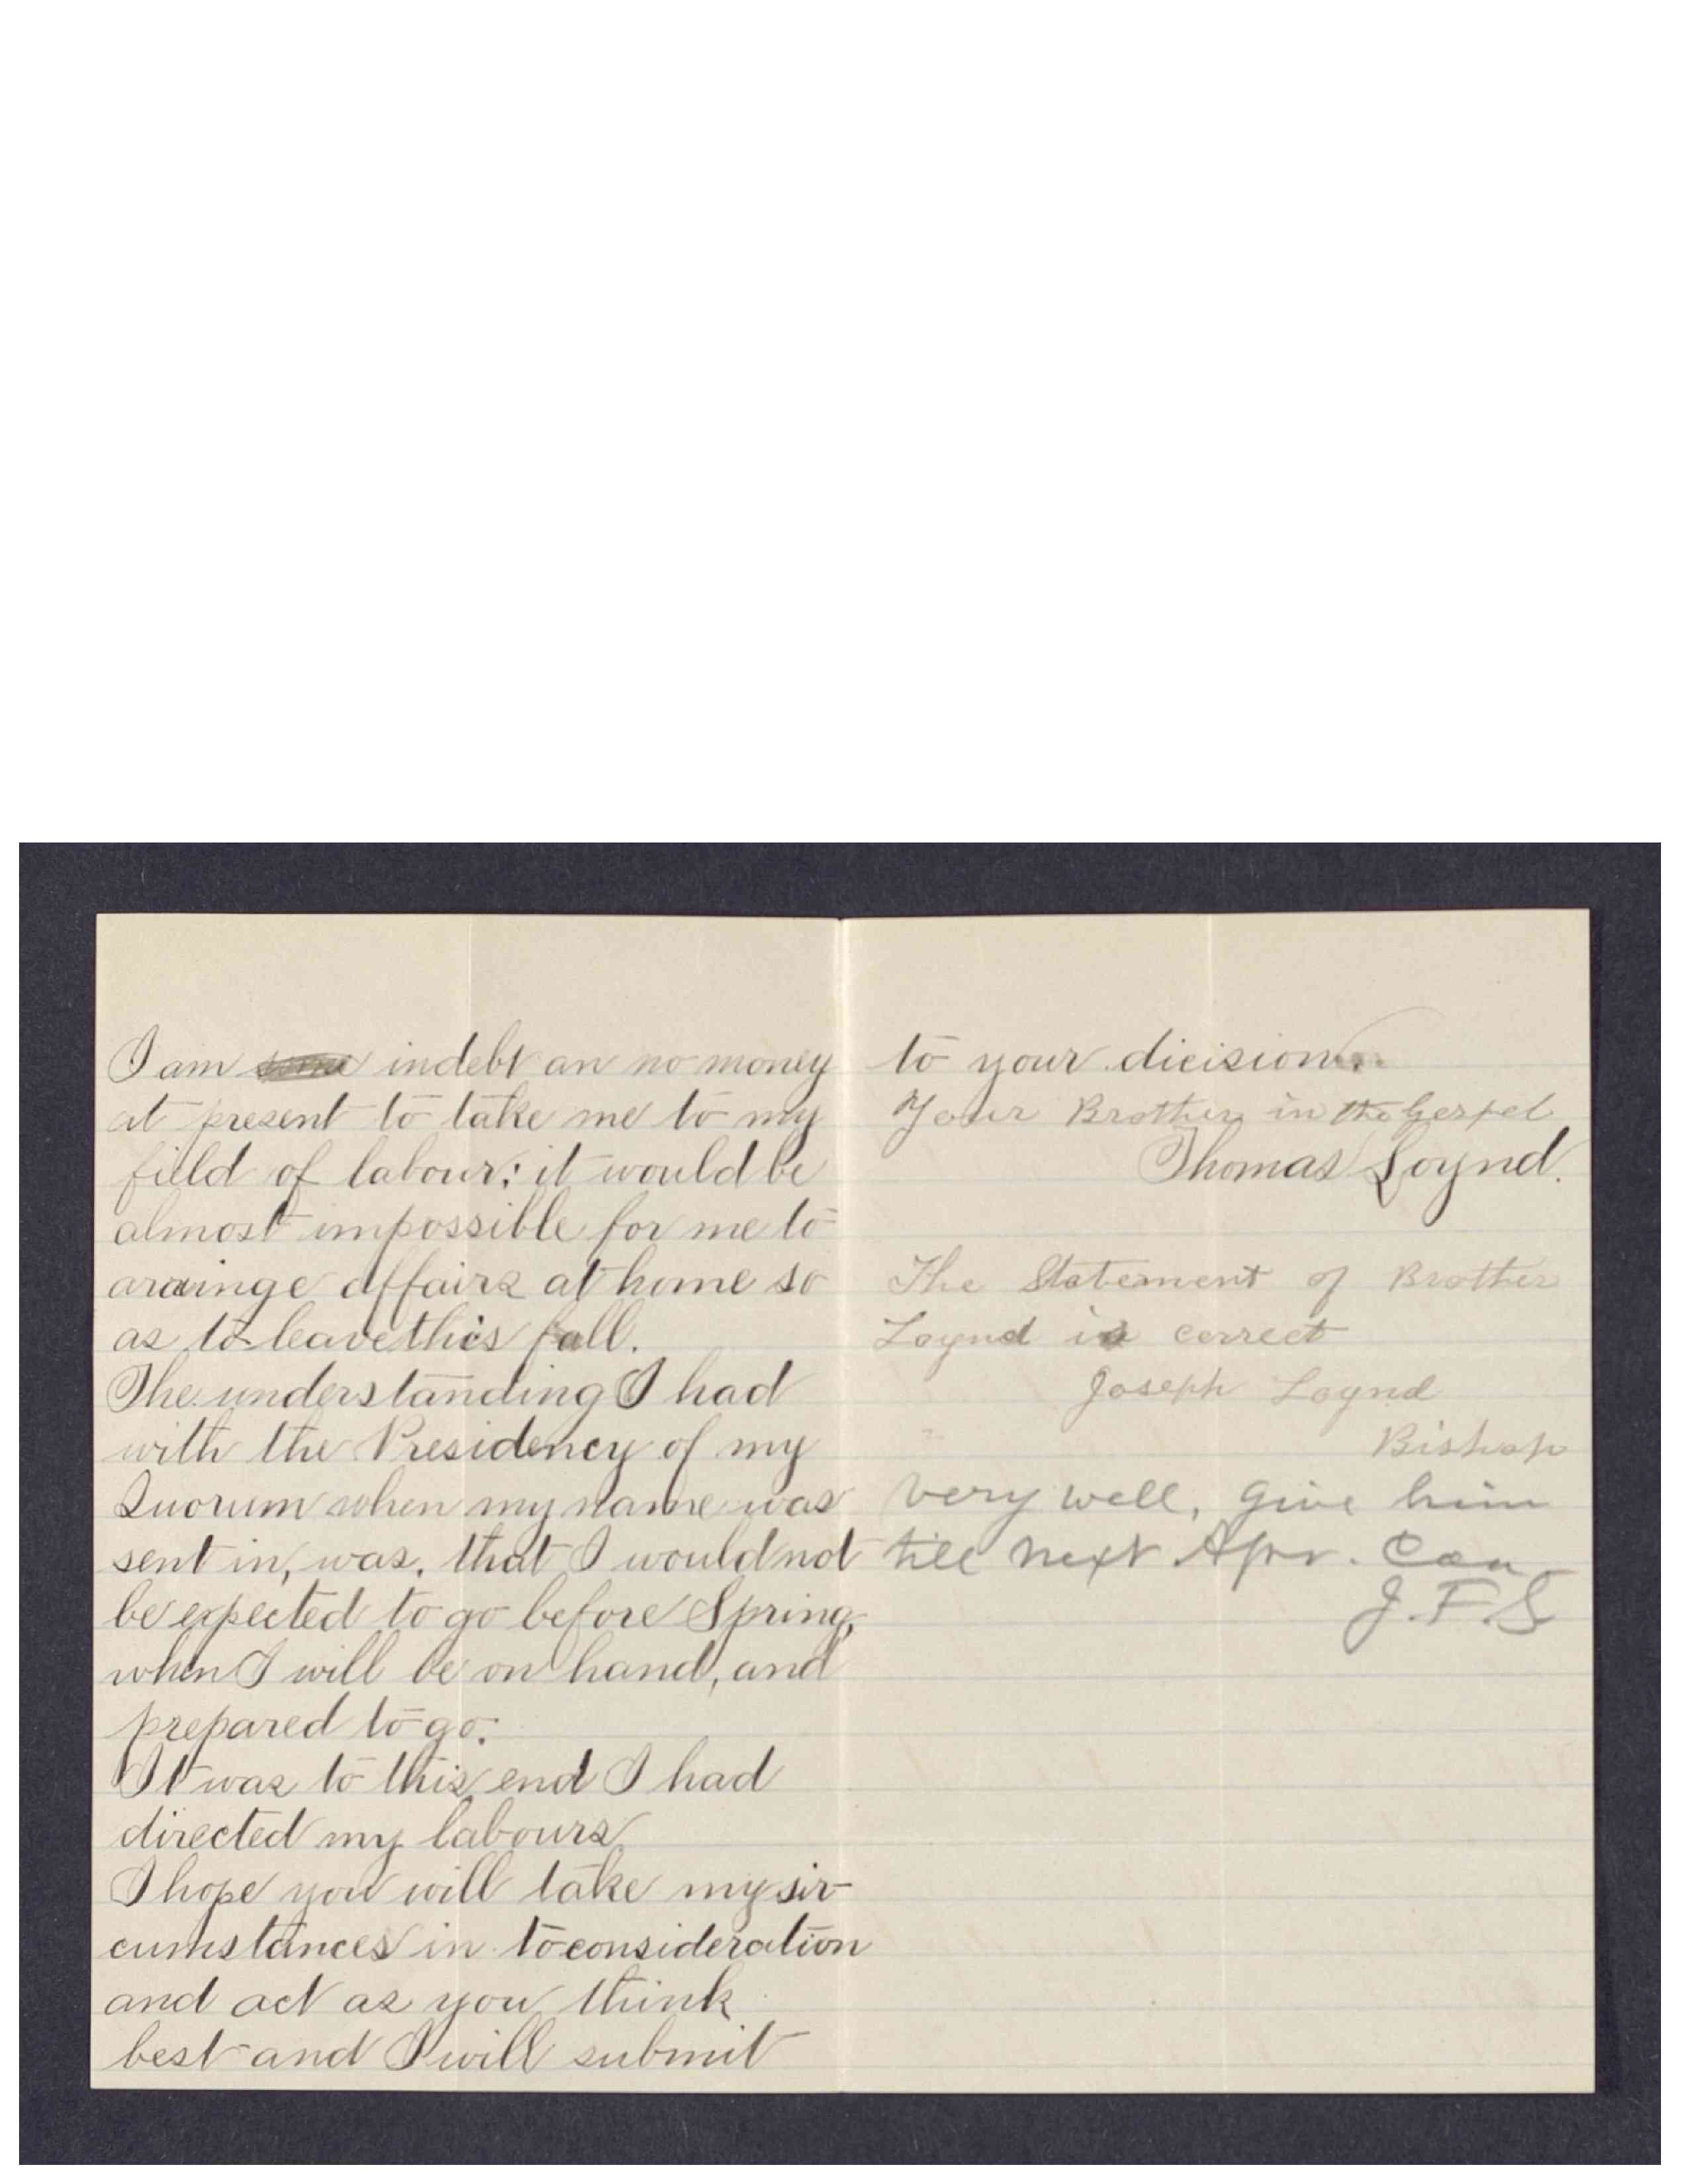 I am some indebt an no money
at present to take me to my
field of labour; it would be
almost impossible for me to
arainge affairs at home so
as to leave this fall.
The understanding I had
with the Presidency of my
Quorum when my name was
sent in, was, that I would not
be expected to go before Spring,
when I will be on hand, and
prepared to go.
It was to this end I had
directed my labours
I hope you will take my sir-
cumstances in to consideration
and act as you think
best and I will submit
to your dicision
Your Brother in the Gospel
Thomas Loynd.
The Statement of Brother
Loynd is correct
Joseph Loynd
Bishop
Very well, give him
till next Apr. Con
J. F. S